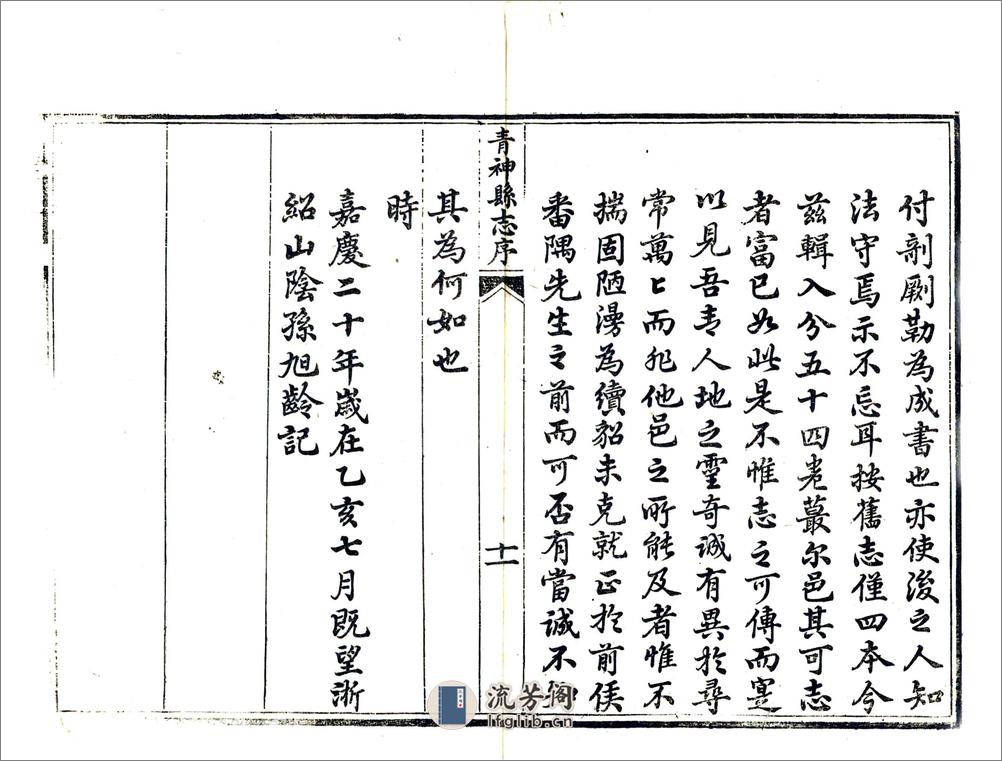 付剞劂勒為成書也亦使後之人知
法守焉示不忘耳按舊志僅四本今
茲輯入分五十四卷蕞尔邑其可志
者富已如此是不惟志之可傳而寔
以見吾青人地之靈奇誠有異於尋
常萬〻而非他邑之所能及者惟不
揣固陋漫為續貂未克就正於前侯
番隅先生之前而可否有當誠不
青神縣志序
十一
其為何如也
時
嘉慶二十年歲在乙亥七月既望浙
紹山陰孫旭齡記
流芳阁
lfglib.cn